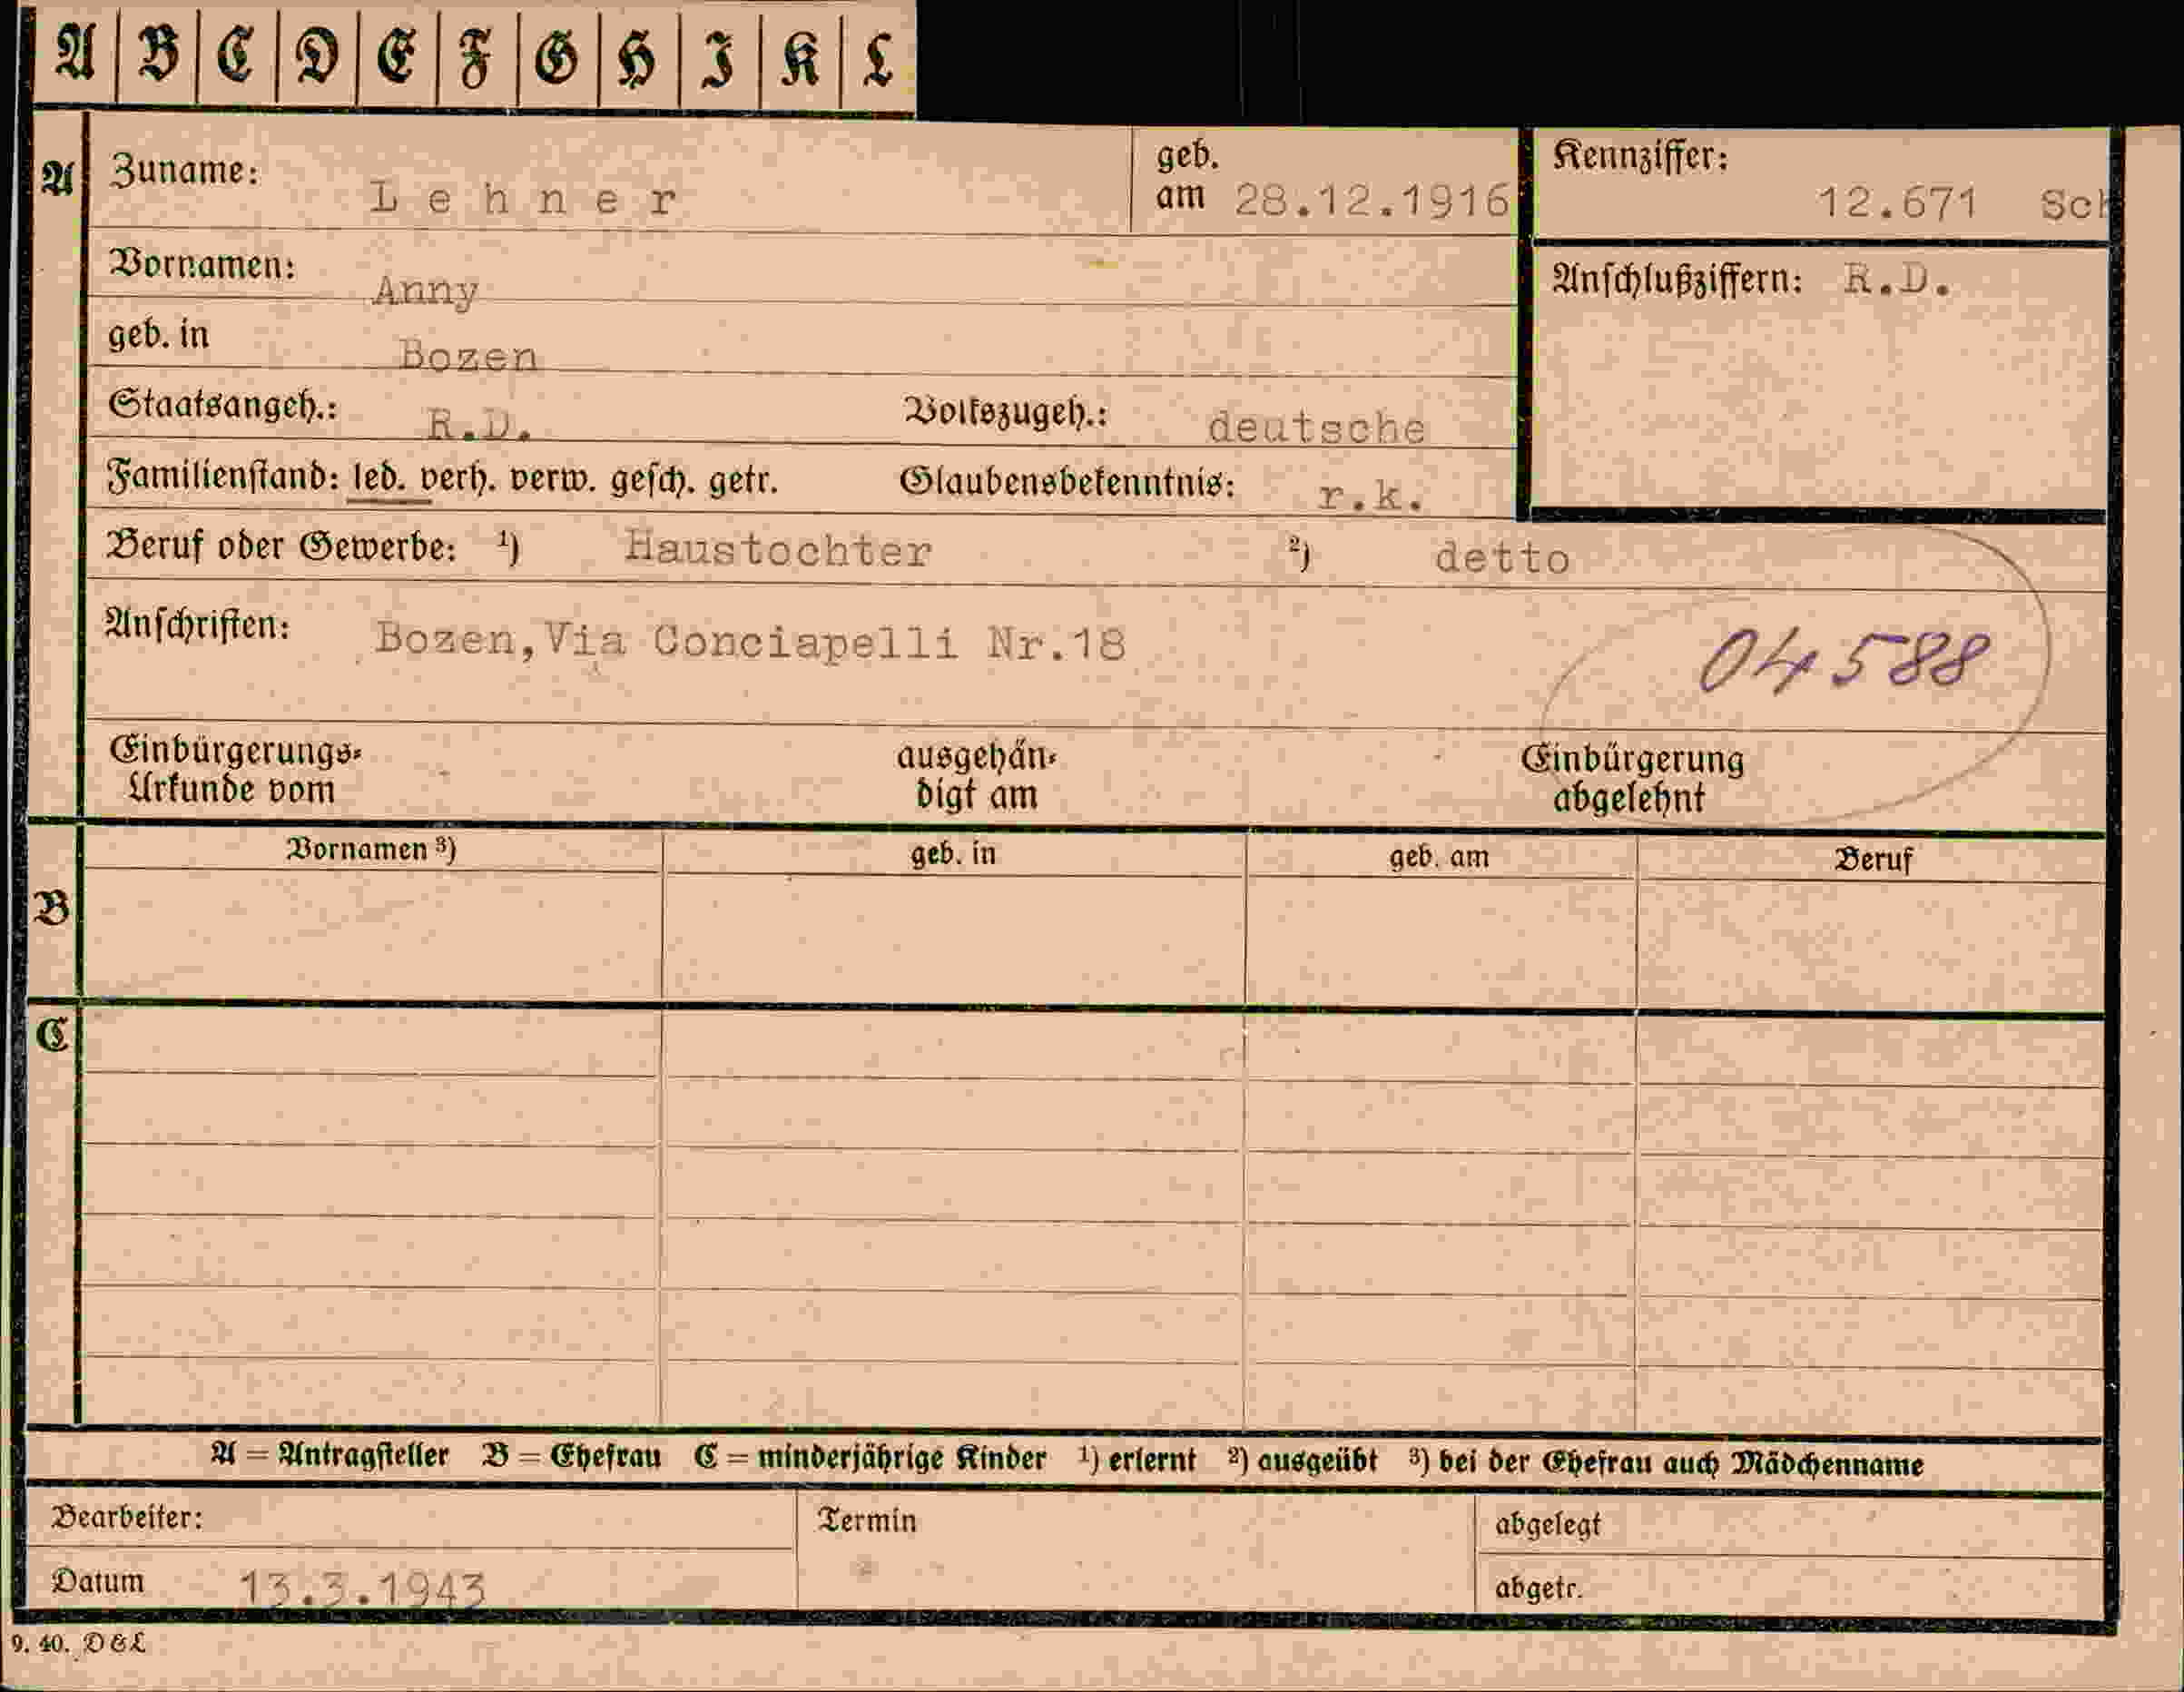 A B C D E F G H I K L
A Zuname: Lehner geb. am 28.12.1916 Kennziffer: 12.671 Sch
Vornamen: Anny Anschlußziffern: R.D.
geb. in Bozen
Staatsangeh.: R.D. Volkszugeh.: deutsche
Familienstand: led. verh. verw. gesch. getr. Glaubensbekenntnis: r.k.
Beruf oder Gewerbe: ¹) Haustochter ²) detto
Anschriften: Bozen,Via Conciapelli Nr.18 04588
Einbürgerungs- ausgehän- Einbürgerung
Urkunde vom digt am abgelehnt
Vornamen ³) geb. in geb. am Beruf
B
C
A = Antragsteller B = Ehefrau C = minderjährige Kinder ¹) erlernt ²) ausgeübt ³) bei der Ehefrau auch Mädchenname
Bearbeiter: Termin abgelegt
Datum 13.3.1943 abgetr.
9. 40. D & L